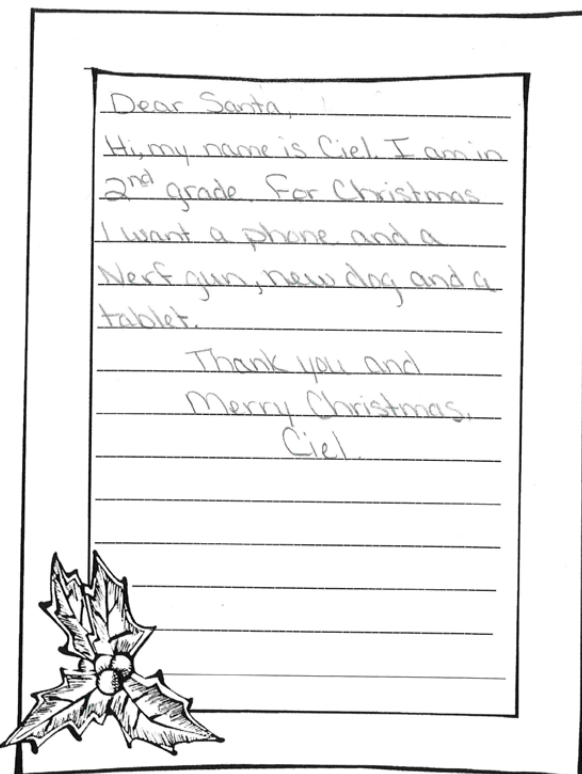 Dear Santa,
Hi, my name is Ciel. I am in
2nd grade. For Christmas
I want a phone and a
Nerf gun, new dog and a
tablet.
Thank you and
Merry Christmas,
Ciel